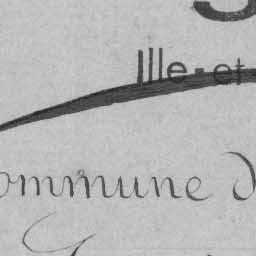 Ille-et
ommune d